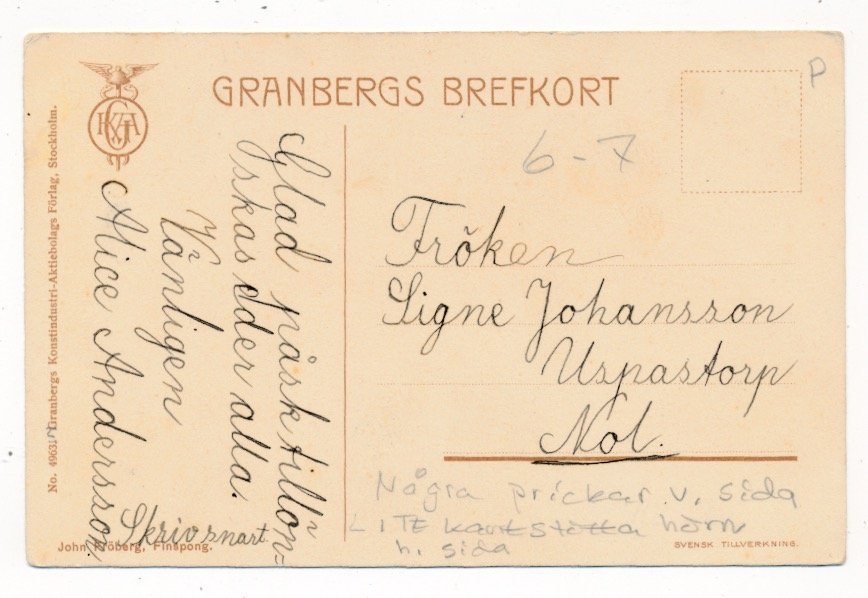 GRANBERGS BREFKORT
P
6-7
Glad påsk tillön=
skas eder alla.
Vänligen
Alice Andersson
Skriv snart
Fröken
Signe Johansson
Uspastorp
Nol.
Några prickar v. sida
LITE kantstötta hörn
h. sida
No. 4963. Granbergs Konstindustri-Aktiebolags Förlag, Stockholm.
John Fröberg, Finspong.
SVENSK TILLVERKNING.